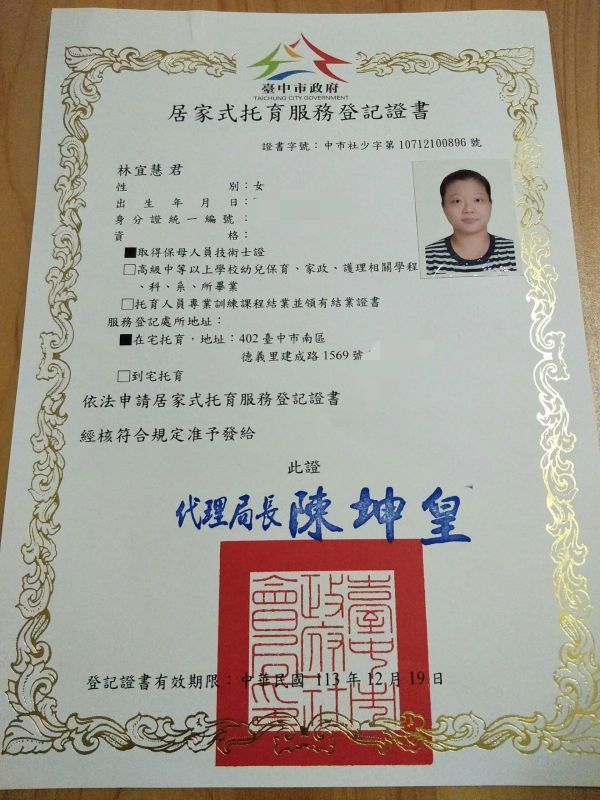 臺中市政府
TAICHUNG CITY GOVERNMENT
居家式托育服務登記證書
證書字號：中市社少字第 10712100896 號
林宜慧 君
性別：女
出生年月日：
身分證統一編號：
資格：
■取得保母人員技術士證
□高級中等以上學校幼兒保育、家政、護理相關學程
、科、系、所畢業
□托育人員專業訓練課程結業並領有結業證書
服務登記處所地址：
■在宅托育，地址：402 臺中市南區
德義里建成路 1569 號
□到宅托育
依法申請居家式托育服務登記證書
經核符合規定准予發給
此證
代理局長 陳坤皇
臺中市政府社會局印
登記證書有效期限：中華民國 113 年 12 月 19 日